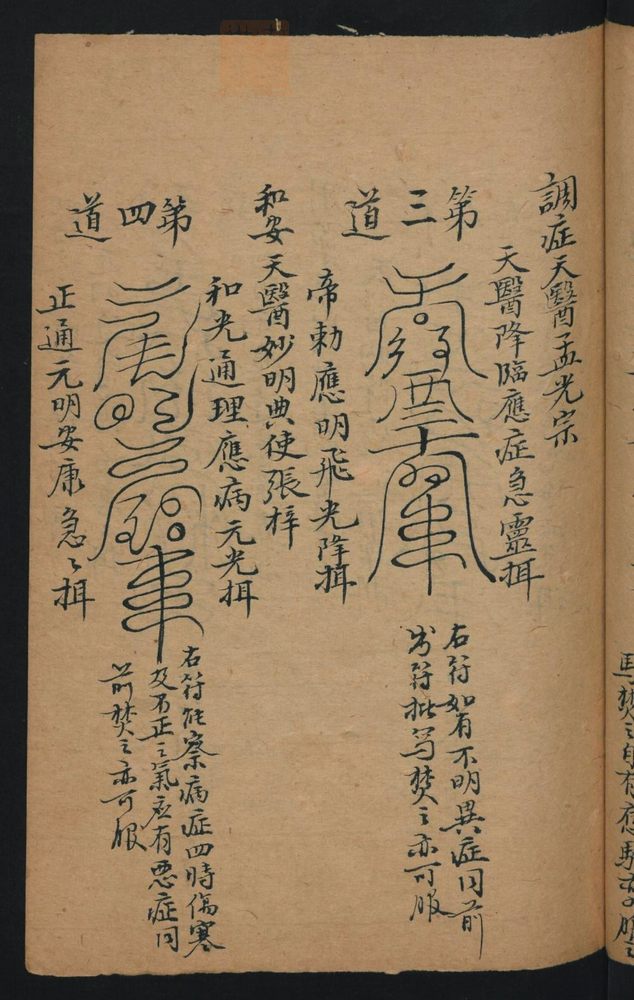 調症天醫孟光宗
天醫降臨應症急靈揖
第三道
帝勅應明飛光降揖
右符如有不明異症同前
符批焚之亦可服
和安天醫妙明典使張梓
和光通理應病元光揖
第四道
正通元明安康急々揖
右符能察病症四時傷寒
及不正之氣應有惡症同
前焚之亦可服